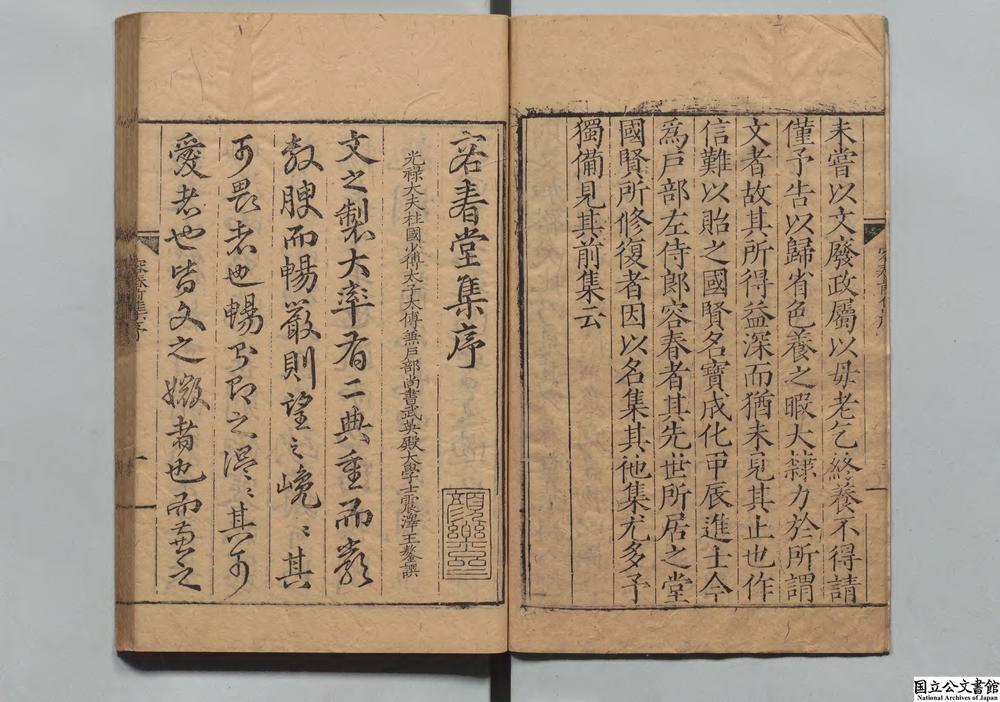 未嘗以文廢政屬以毋老乞終養不得請
僅予告以歸省色養之暇大肆力於所謂
文者故其所得益深而猶未見其止也作
信難以貽之國賢名寶成化甲辰進士今
為戶部左侍郎容春者其先世所居之堂
國賢所修復者因以名集其他集尤多予
獨備見其前集云
容春堂集序
光祿大夫柱國少傅太子太傅兼戶部尚書武英殿大學士震澤王鏊譔
文之製大率有二典重而嚴
敷腴而暢嚴則望之巉〻其
可畏者也暢則即之溫〻其可
愛者也皆文之媺者也而兼之
国立公文書館
National Archives of Japan